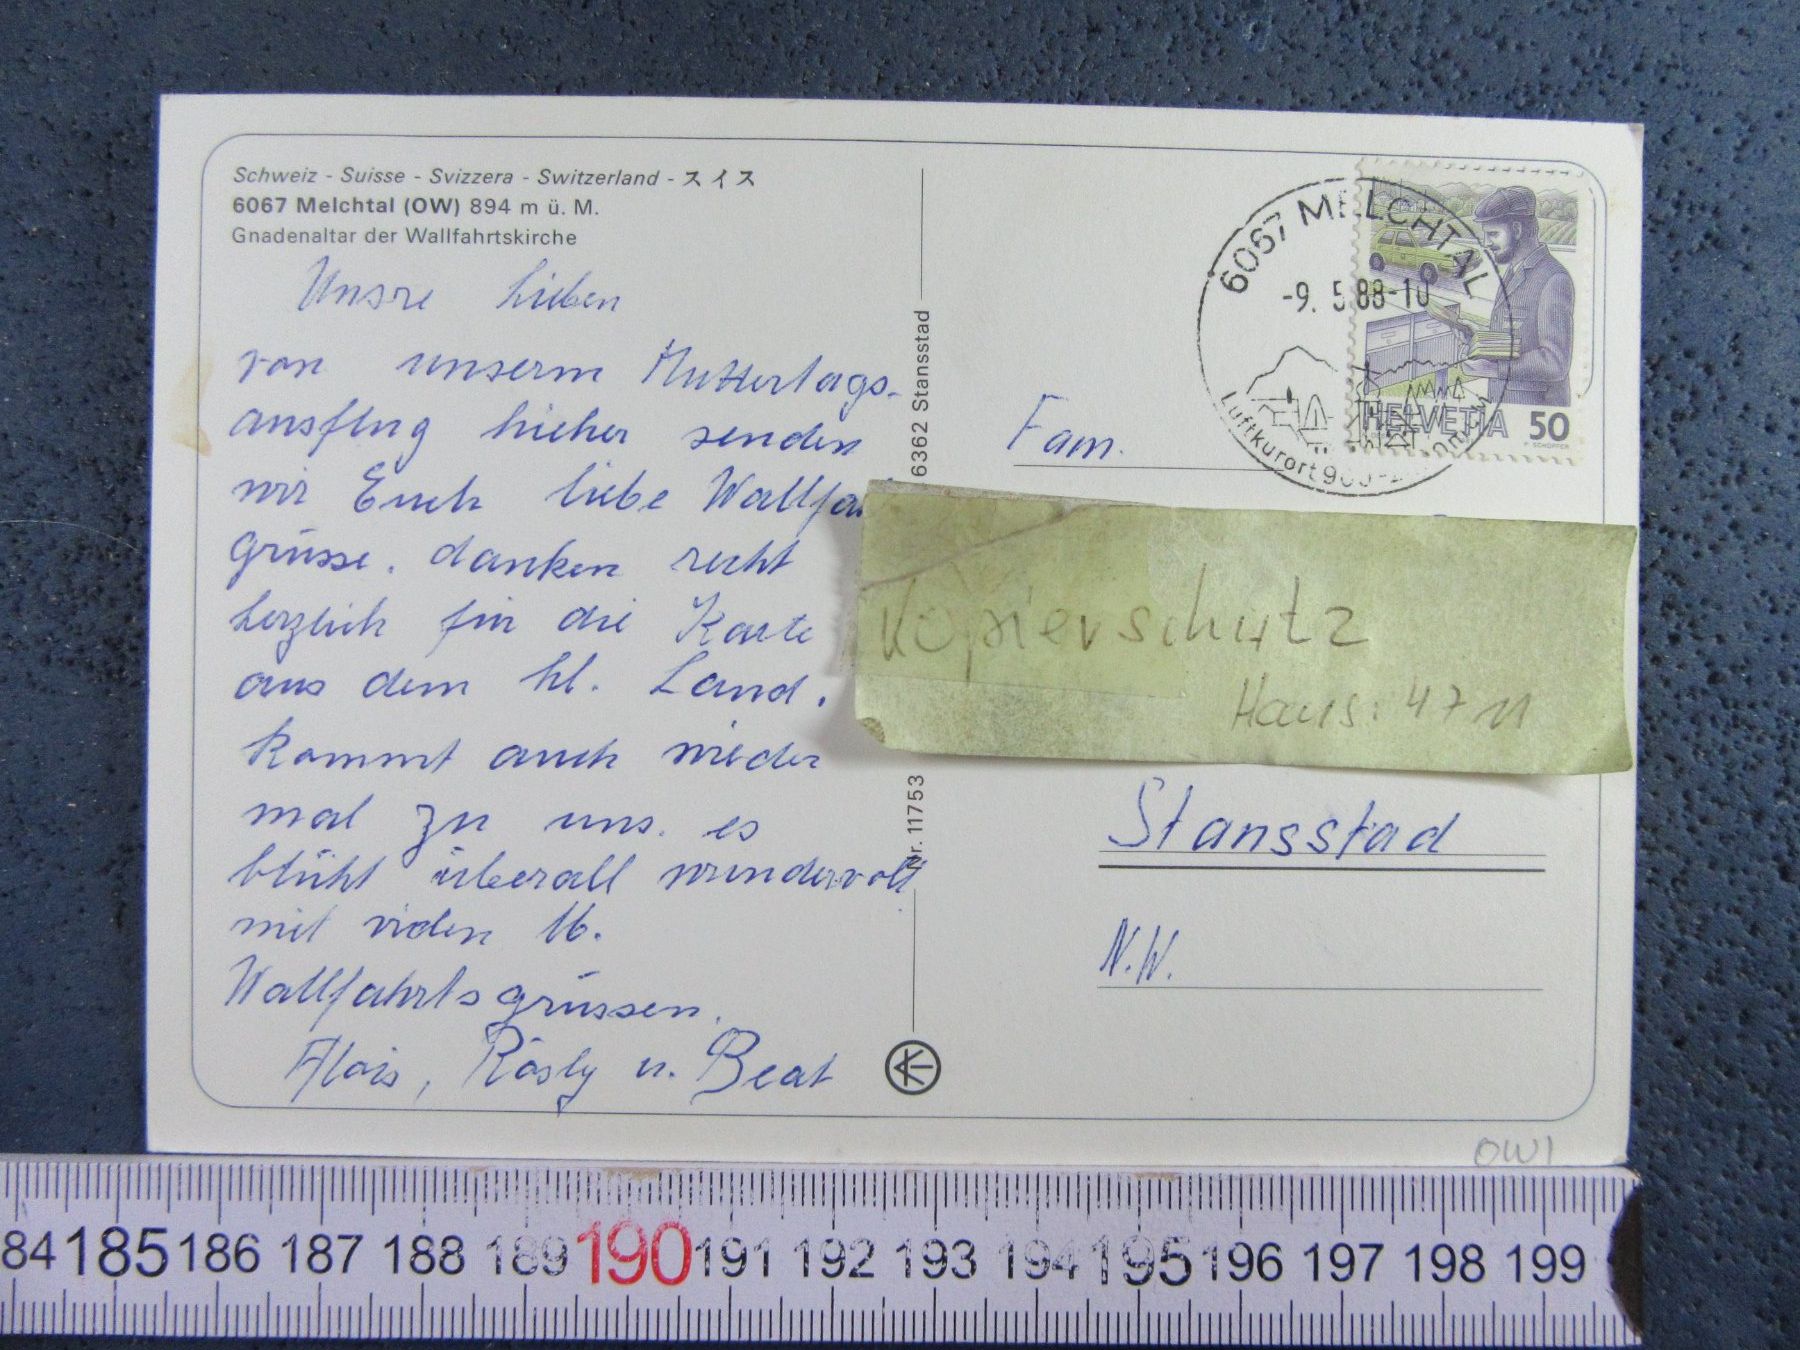 Schweiz - Suisse - Svizzera - Switzerland - スイス
6067 Melchtal (OW) 894 m ü. M.
Gnadenaltar der Wallfahrtskirche
Unsre Lieben
von unserm Muttertags-
ausflug hieher senden
wir Euch liebe Wallfah
grüsse. danken recht
herzlich für die Karte
aus dem hl. Land.
kommt auch wieder
mal zu uns. es
blüht überall wundervoll
mit vielen lb.
Wallfahrtsgrüssen.
Alois, Rösly u. Beat
6362 Stansstad
Nr. 11753
6067 MELCHTAL
-9. 5.88-10
Luftkurort 900-
HELVETIA 50
Fam.
Kopierschutz
Haus: 4711
Stansstad
N.W.
OW1
84 185 186 187 188 189 190 191 192 193 194 195 196 197 198 199